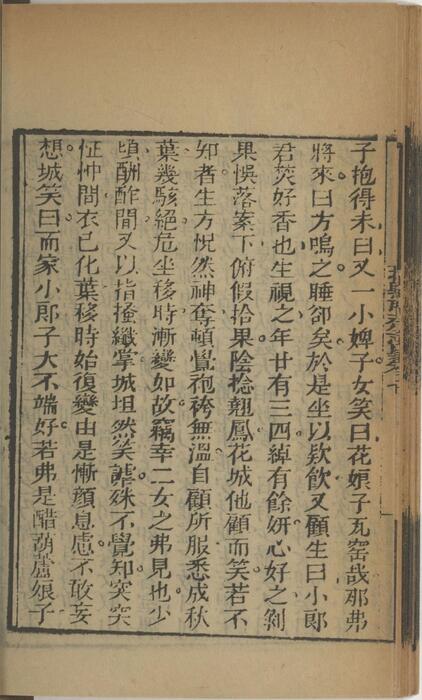 子抱得未曰又一小婢子女笑曰花娘子瓦窰哉那弗
將來曰方嗚之睡卻矣於是坐以欵飲又顧生曰小郎
君焚好香也生視之年廿有三四綽有餘妍心好之剝
果悞落案下俯假拾果陰捻翹鳳花城他顧而笑若不
知者生方怳然神奪頓覺袍袴無溫自顧所服悉成秋
葉幾駭絕危坐移時漸變如故竊幸二女之弗見也少
頃酬酢間又以指搔纖掌城坦然笑謔殊不覺知突突
怔忡間衣已化葉移時始復變由是慚顏息慮不敢妄
想城笑曰而家小郎子大不端好若弗是醋葫蘆娘子